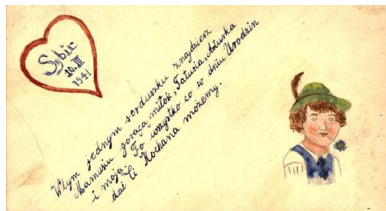 Sybir
10.III
1941
W tym jednym serduszku znajdziesz
Mamusiu gorącą miłość, Tatusia, Aluska
i moją. To wszystko co w dniu Urodzin
dać Ci Kochana możemy.